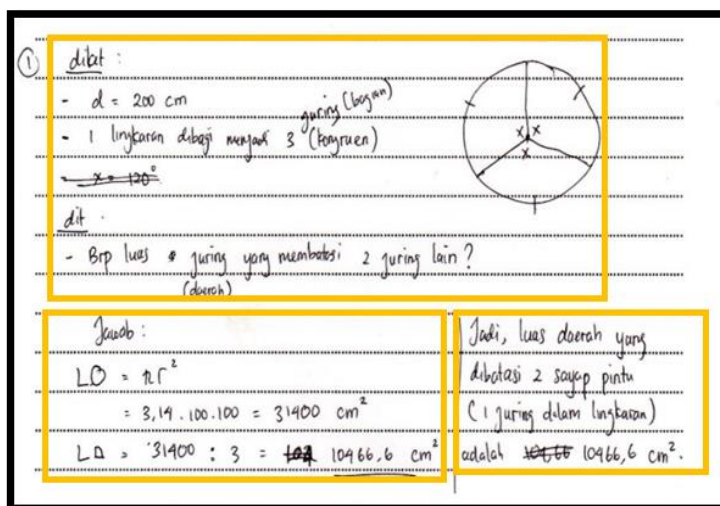 ① diket :
- d = 200 cm
- 1 lingkaran dibagi menjadi 3 juring (bagian) (kongruen)
- x = 120°
x x
x
dit.
- Brp luas juring yang membatasi 2 juring lain?
(daerah)
Jawab :
LO = πr²
= 3,14 . 100 . 100 = 31400 cm²
L∆ = 31400 : 3 = 10466,6 cm²
Jadi, luas daerah yang
dibatasi 2 sayap pintu
(1 juring dalam lingkaran)
adalah 10466 10466,6 cm².